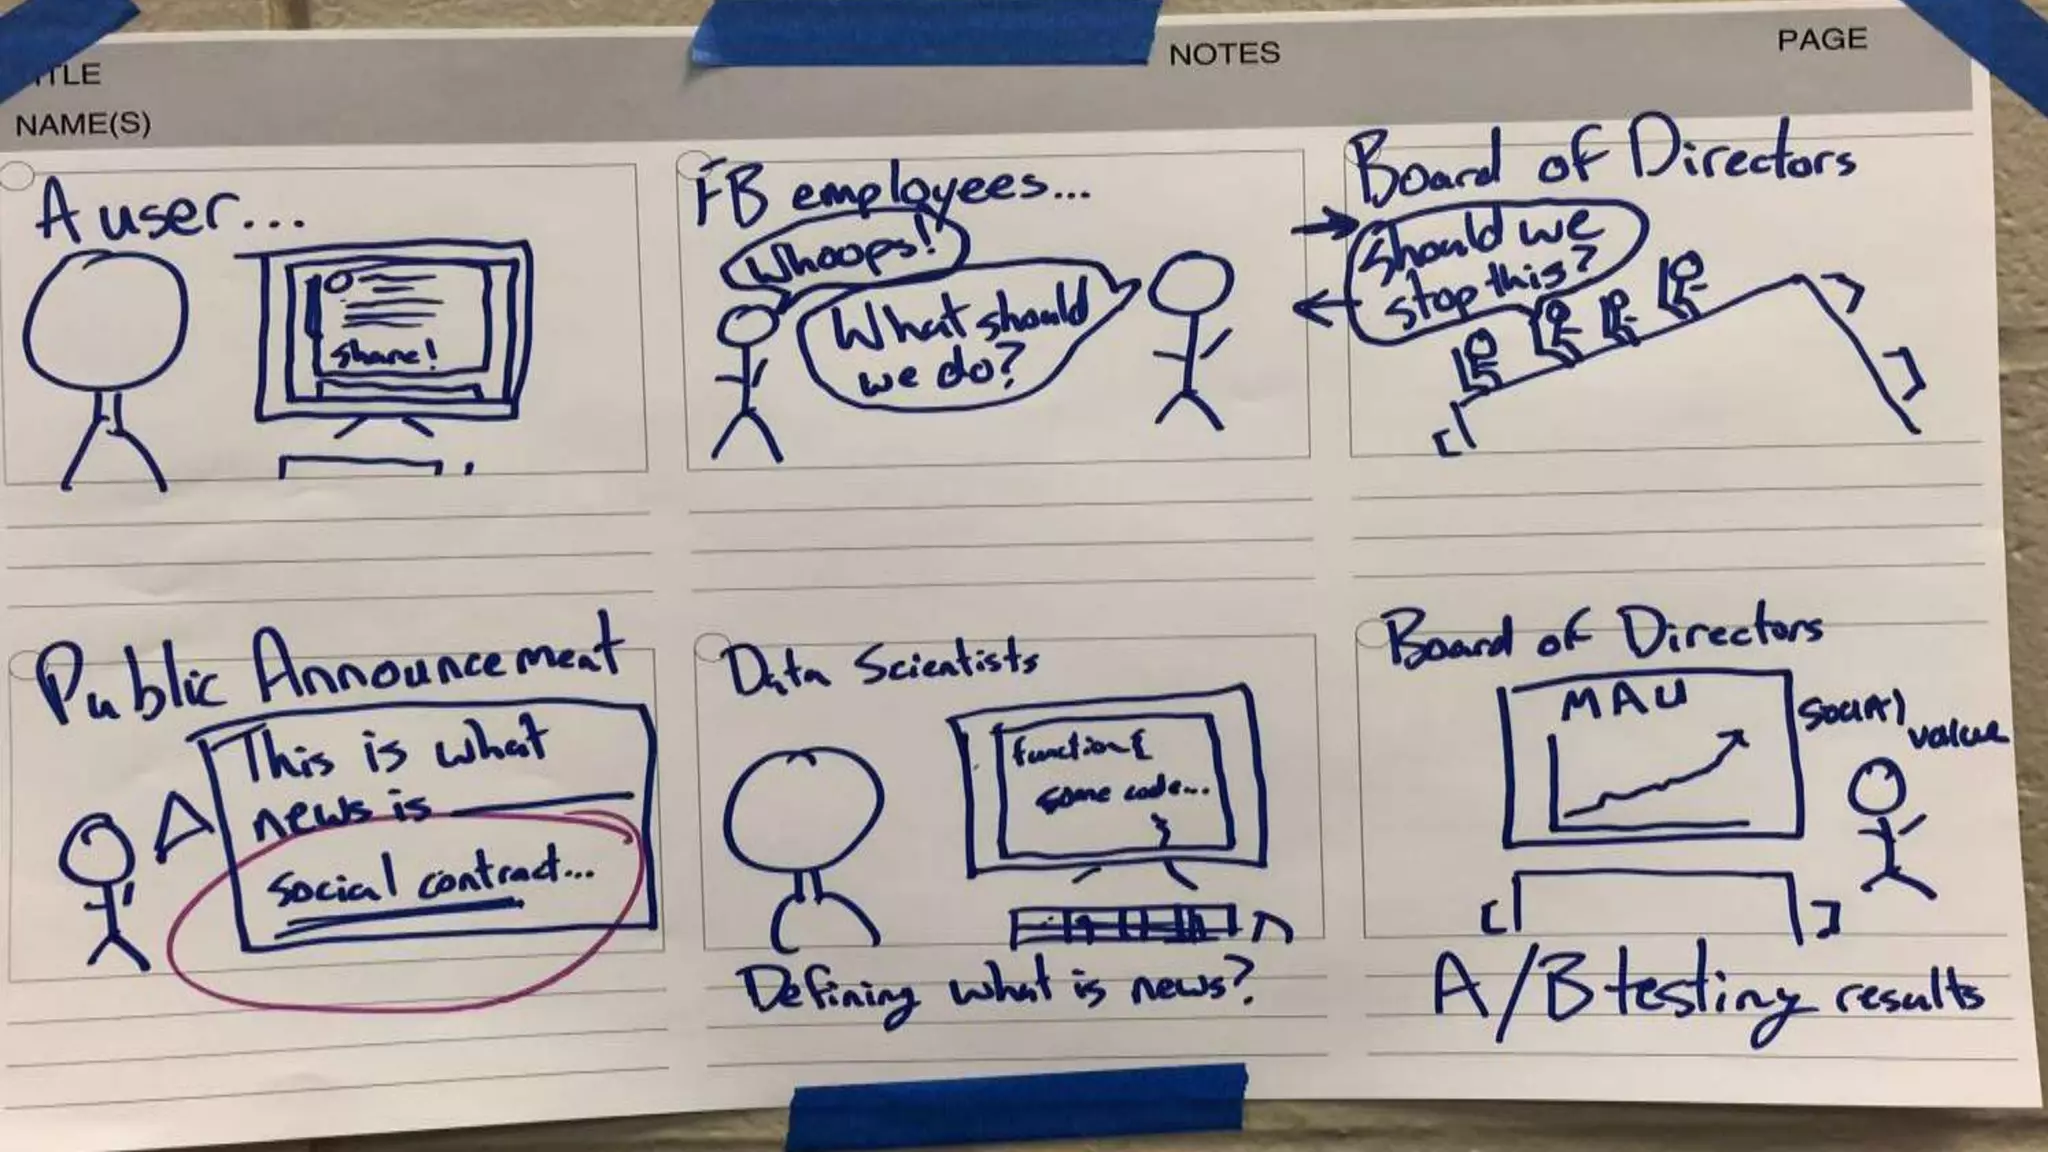 TITLE
NOTES
PAGE
NAME(S)
A user...
share!
FB employees...
Whoops!
What should
we do?
Board of Directors
Should we
stop this?
Public Announcement
This is what
news is
social contract...
Data Scientists
function {
some code...
}
Defining what is news?
Board of Directors
MAU
social
value
A/B testing results